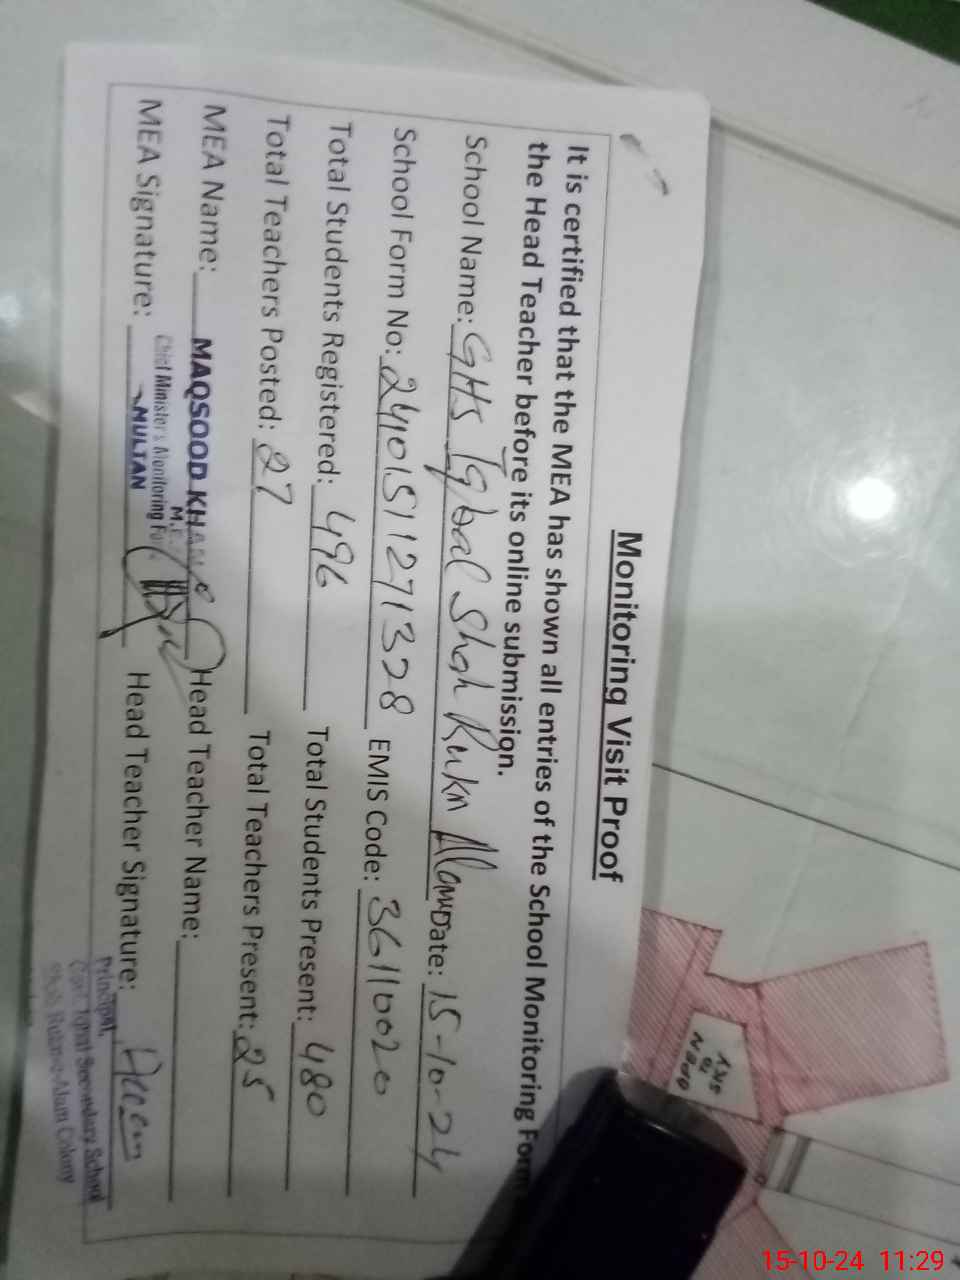 Monitoring Visit Proof
It is certified that the MEA has shown all entries of the School Monitoring Form
the Head Teacher before its online submission.
School Name: GHS Iqbal Shah Rukn Alam Date: 15-10-24
School Form No: 2401511271328 EMIS Code: 36110020
Total Students Registered: 496 Total Students Present: 480
Total Teachers Posted: 27 Total Teachers Present: 25
MEA Name: MAQSOOD KHAN Head Teacher Name:
M.E.
Chief Minister's Monitoring
MEA Signature: MULTAN Head Teacher Signature:
Principal,
Govt. Iqbal Secondary School
Alam Colony
15-10-24 11:29